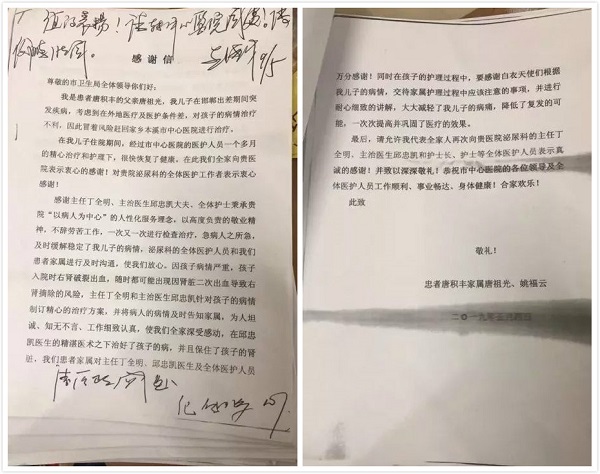 感谢信
尊敬的市卫生局全体领导你们好：
我是患者唐积丰的父亲唐祖光，我儿子在邯郸出差期间突
发疾病，考虑到在外地医疗及医护条件差，对孩子的病情治疗
不利，因此冒着风险赶回家乡本溪市中心医院进行治疗。
在我儿子住院期间，经过市中心医院的医护人员一个多月
的精心治疗和护理下，很快恢复了健康。在此我们全家向贵医
院表示衷心的感谢！对贵院泌尿科的全体医护工作者表示衷心
感谢！
感谢主任丁全明、主治医生邱忠凯大夫、全体护士秉承贵
院“以病人为中心”的人性化服务理念，以高度负责的敬业精
神，不辞劳苦工作，一次又一次进行检查治疗，急病人之所急，
及时缓解稳定了我儿子的病情，泌尿科的全体医护人员和我们
患者家属进行及时沟通，使我们放心。因孩子病情严重，孩子
入院时右肾破裂出血，随时都可能出现因肾脏二次出血导致右
肾摘除的风险，主任丁全明和主治医生邱忠凯针对孩子的病情
制订精心的治疗方案，并将病人的病情及时告知家属，为人坦
诚、知无不言、工作细致认真，使我们全家深受感动，在邱忠
凯医生的精湛医术之下治好了孩子的病，并且保住了孩子的肾
脏，我们患者家属对主任丁全明、邱忠凯医生及全体医护人员
万分感谢！同时在孩子的护理过程中，要感谢白衣天使们根据
我儿子的病情，交待家属护理过程中应该注意的事项，并进行
耐心细致的讲解，大大减轻了我儿子的病痛，降低了复发的可
能。一次次提高并巩固了医疗的效果。
最后，请允许我代表全家人再次向贵医院泌尿科的主任丁
全明、主治医生邱忠凯和护士长、护士等全体医护人员表示真
诚的感谢！并致以深深敬礼！恭祝市中心医院的各位领导及全
体医护人员工作顺利、事业畅达、身体健康！合家欢乐！
此致
敬礼！
患者唐积丰家属唐祖光、姚福云
二〇一九年五月四日